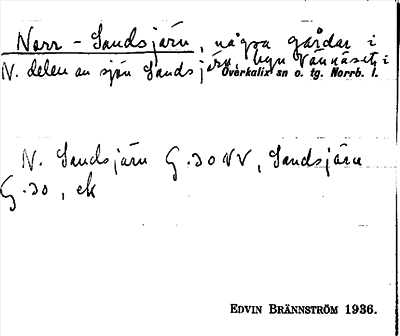 Norr-Sandsjärn, några gårdar i
N. delen av sjön Sandsjärn, byn Vännäset i
Överkalix sn o. tg. Norrb. l.
N. Sandsjärn G.30 NV, Sandsjärn
G.30, ek
EDVIN BRÄNNSTRÖM 1936.